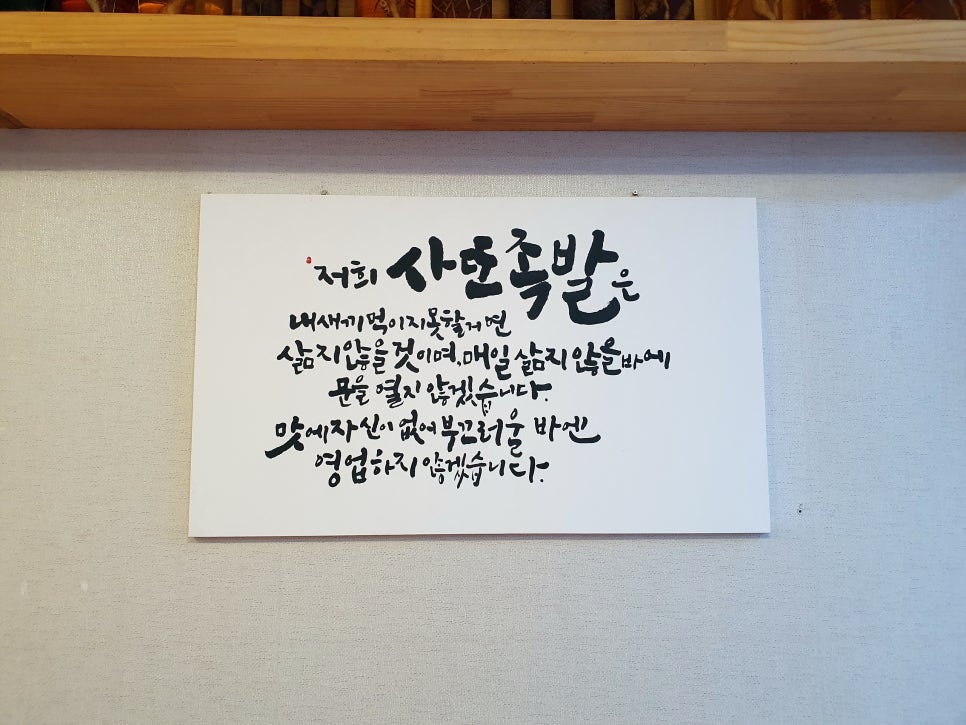 저희 사모족발은
내새끼 먹이지 못할거면
삶지않을것이며, 매일 삶지 않을바에
문을 열지 않겠습니다.
맛에 자신이 없어 부끄러울 바엔
영업하지 않겠습니다.